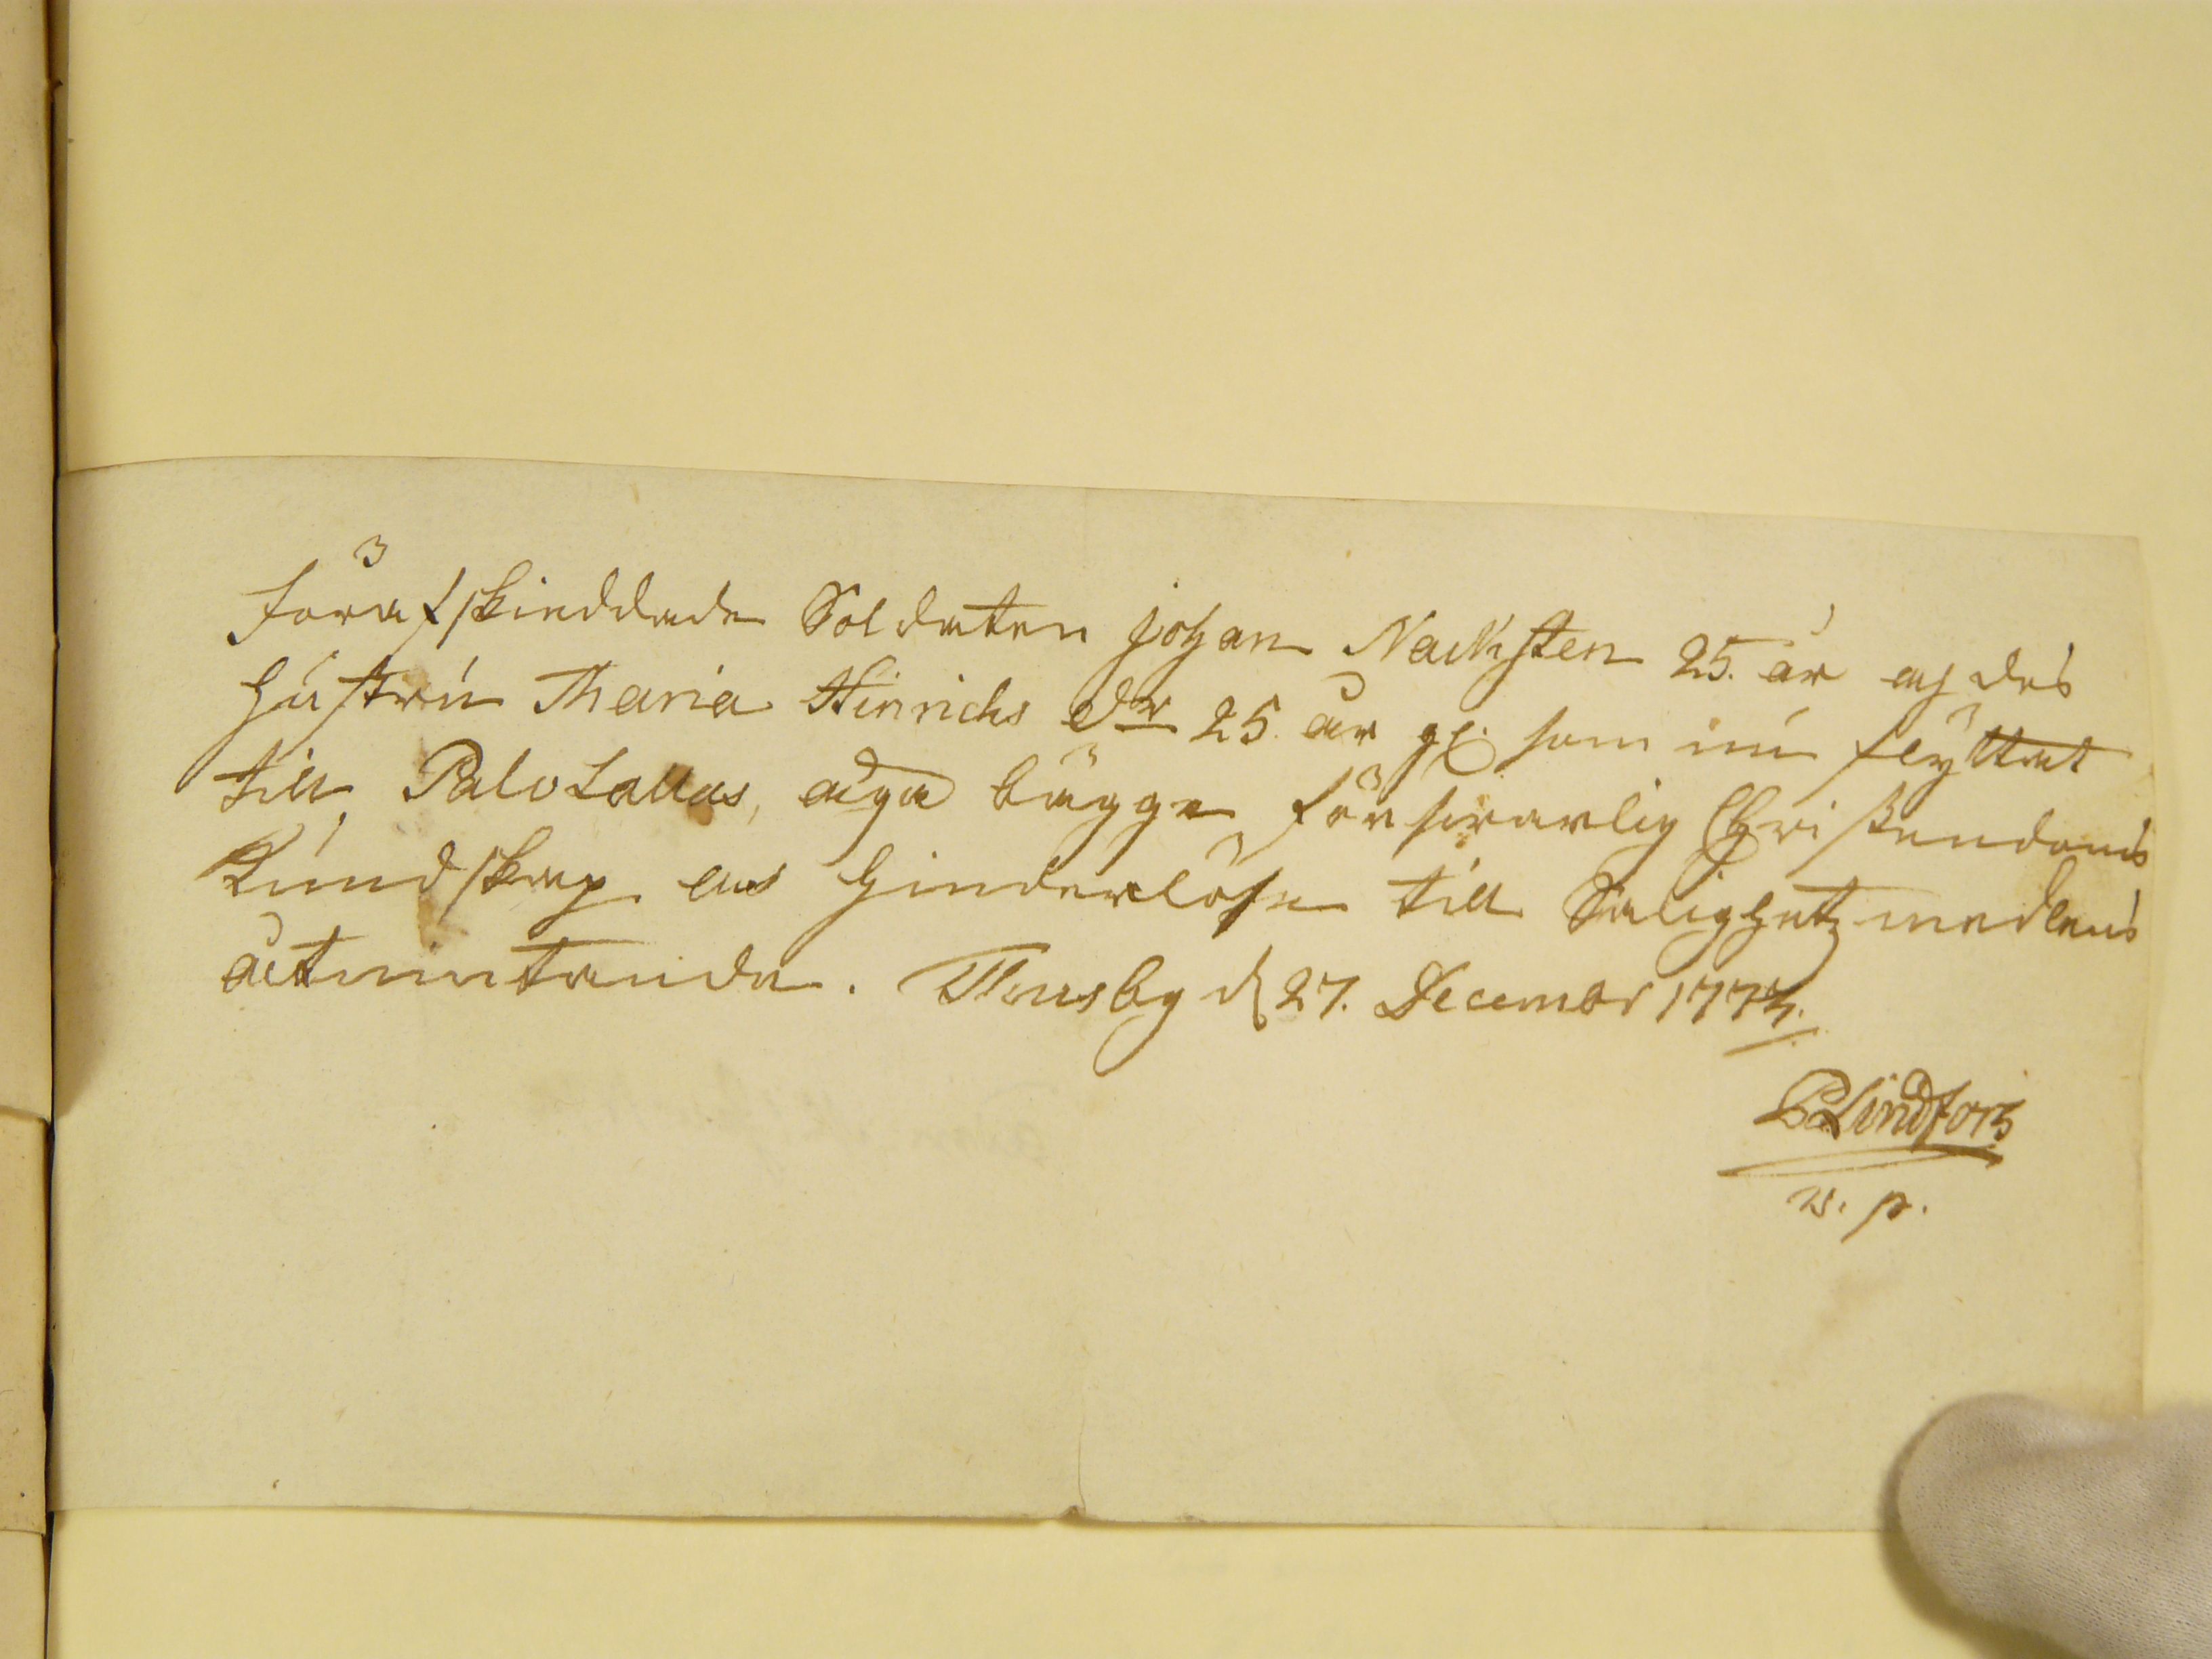 Förafskieddade Soldaten Johan Nacksten 25. år och des
hustru Maria Hinrichs Dr 25. år gl. som nu flyttat
till Palotallas, äga bägge försvarlig Christendoms
Kundskap och hinderlöse till Salighetz medlens
åtniutande. Thusby d 27. December 1773.
Lindfors
v. p.